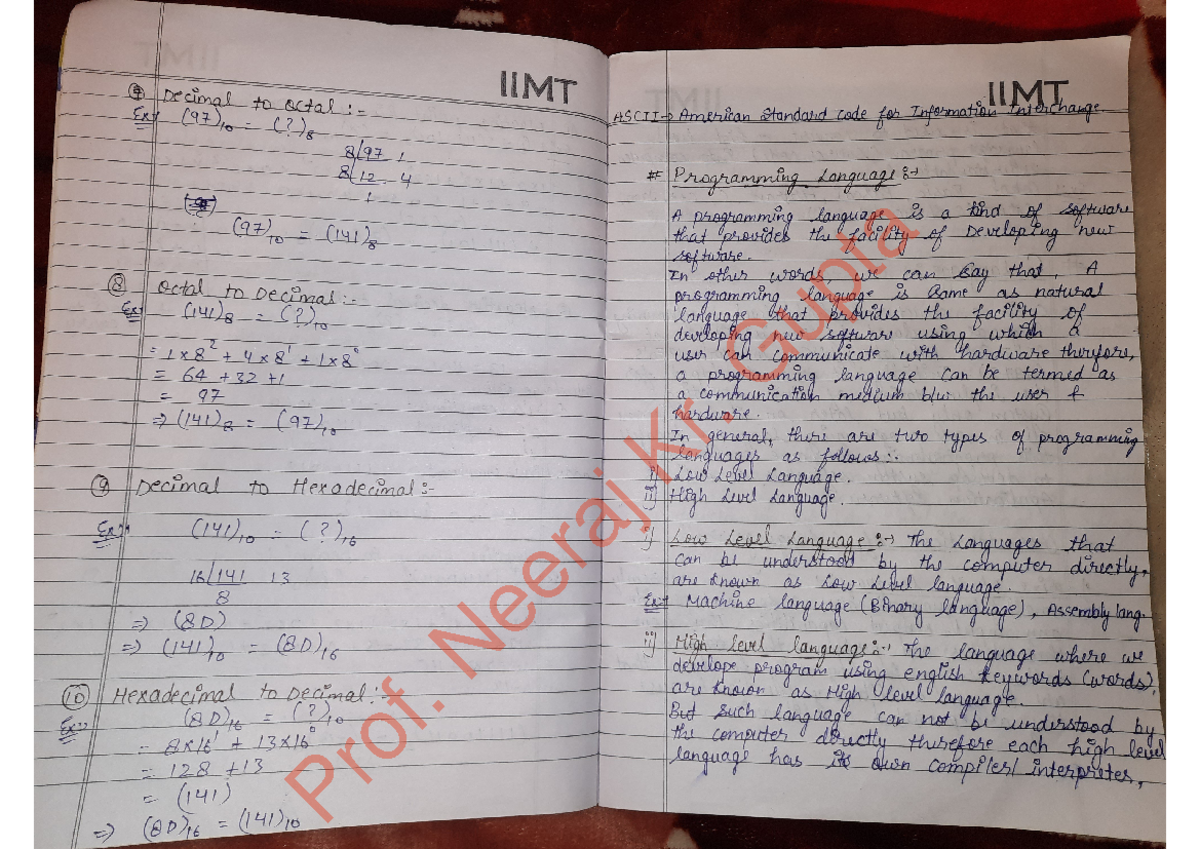 IIMT
⑦ Decimal to Octal :-
Ex:- (97)₁₀ = (?)₈
8 97 1
8 12 4
1
(97)₁₀ = (141)₈
⑧ Octal to Decimal:-
Ex:- (141)₈ = (?)₁₀
= 1×8² + 4×8¹ + 1×8⁰
= 64 + 32 + 1
= 97
⇒ (141)₈ = (97)₁₀
⑨ Decimal to Hexadecimal:-
Ex:- (141)₁₀ = (?)₁₆
16 141 13
8
⇒ (8D)
⇒ (141)₁₀ = (8D)₁₆
⑩ Hexadecimal to Decimal:-
Ex:- (8D)₁₆ = (?)₁₀
= 8×16¹ + 13×16⁰
= 128 + 13
= (141)
⇒ (8D)₁₆ = (141)₁₀
IIMT
ASCII → American Standard code for Information Interchange
# Programming Language:-
A programming language is a kind of software
that provides the facility of Developing new
software.
In other words we can say that, A
programming language is same as natural
language that provides the facility of
developing new software using which a
user can communicate with hardware therefore,
a programming language can be termed as
a communication medium b/w the user &
hardware.
In general, there are two types of programming
languages as follows:-
i) Low Level Language.
ii) High Level Language.
i) Low Level Language:- The Languages that
can be understood by the computer directly,
are known as Low Level language.
Ex:- Machine language (Binary language), Assembly lang.
ii) High Level language:- The language where we
develope program using english keywords (words),
are known as High level language.
But such language can not be understood by
the computer directly therefore each high level
language has its own compiler/ interpreter,
Prof. Neeraj Kr. Gupta